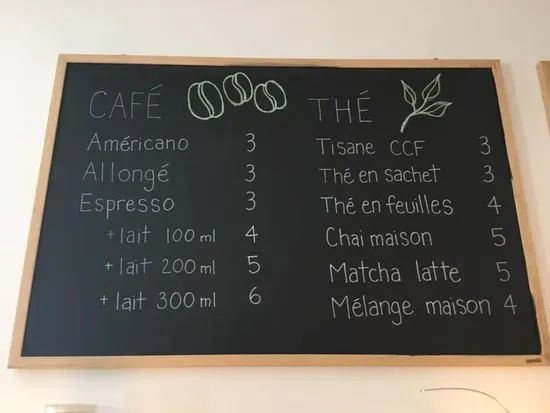 CAFÉ
Américano 3
Allongé 3
Espresso 3
+ lait 100 ml 4
+ lait 200 ml 5
+ lait 300 ml 6
THÉ
Tisane CCF 3
Thé en sachet 3
Thé en feuilles 4
Chai maison 5
Matcha latte 5
Mélange maison 4